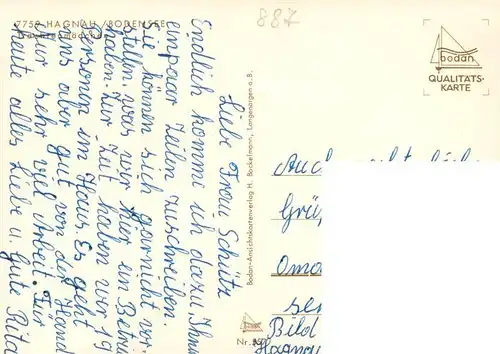 7759 HAGNAU/BODENSEE
887
bodan
QUALITÄTS-
KARTE
Liebe Frau Schütz
Endlich komme ich dazu, Ihnen
einpaar Zeilen zuschreiben.
Sie können sich garnicht vor-
stellen, was wir hier ein Betrieb
haben. Zur Zeit haben wir 19
Personen im Haus. Es geht
uns aber gut von der Hand
nur sehr viel Arbeit. Für
heute alles liebe u. Gute Rita
Bodan-Ansichtskartenverlag H. Bockelmann, Langenargen a.B.
Auch
Grü
Oma
Bild
Hagnau
Nr.